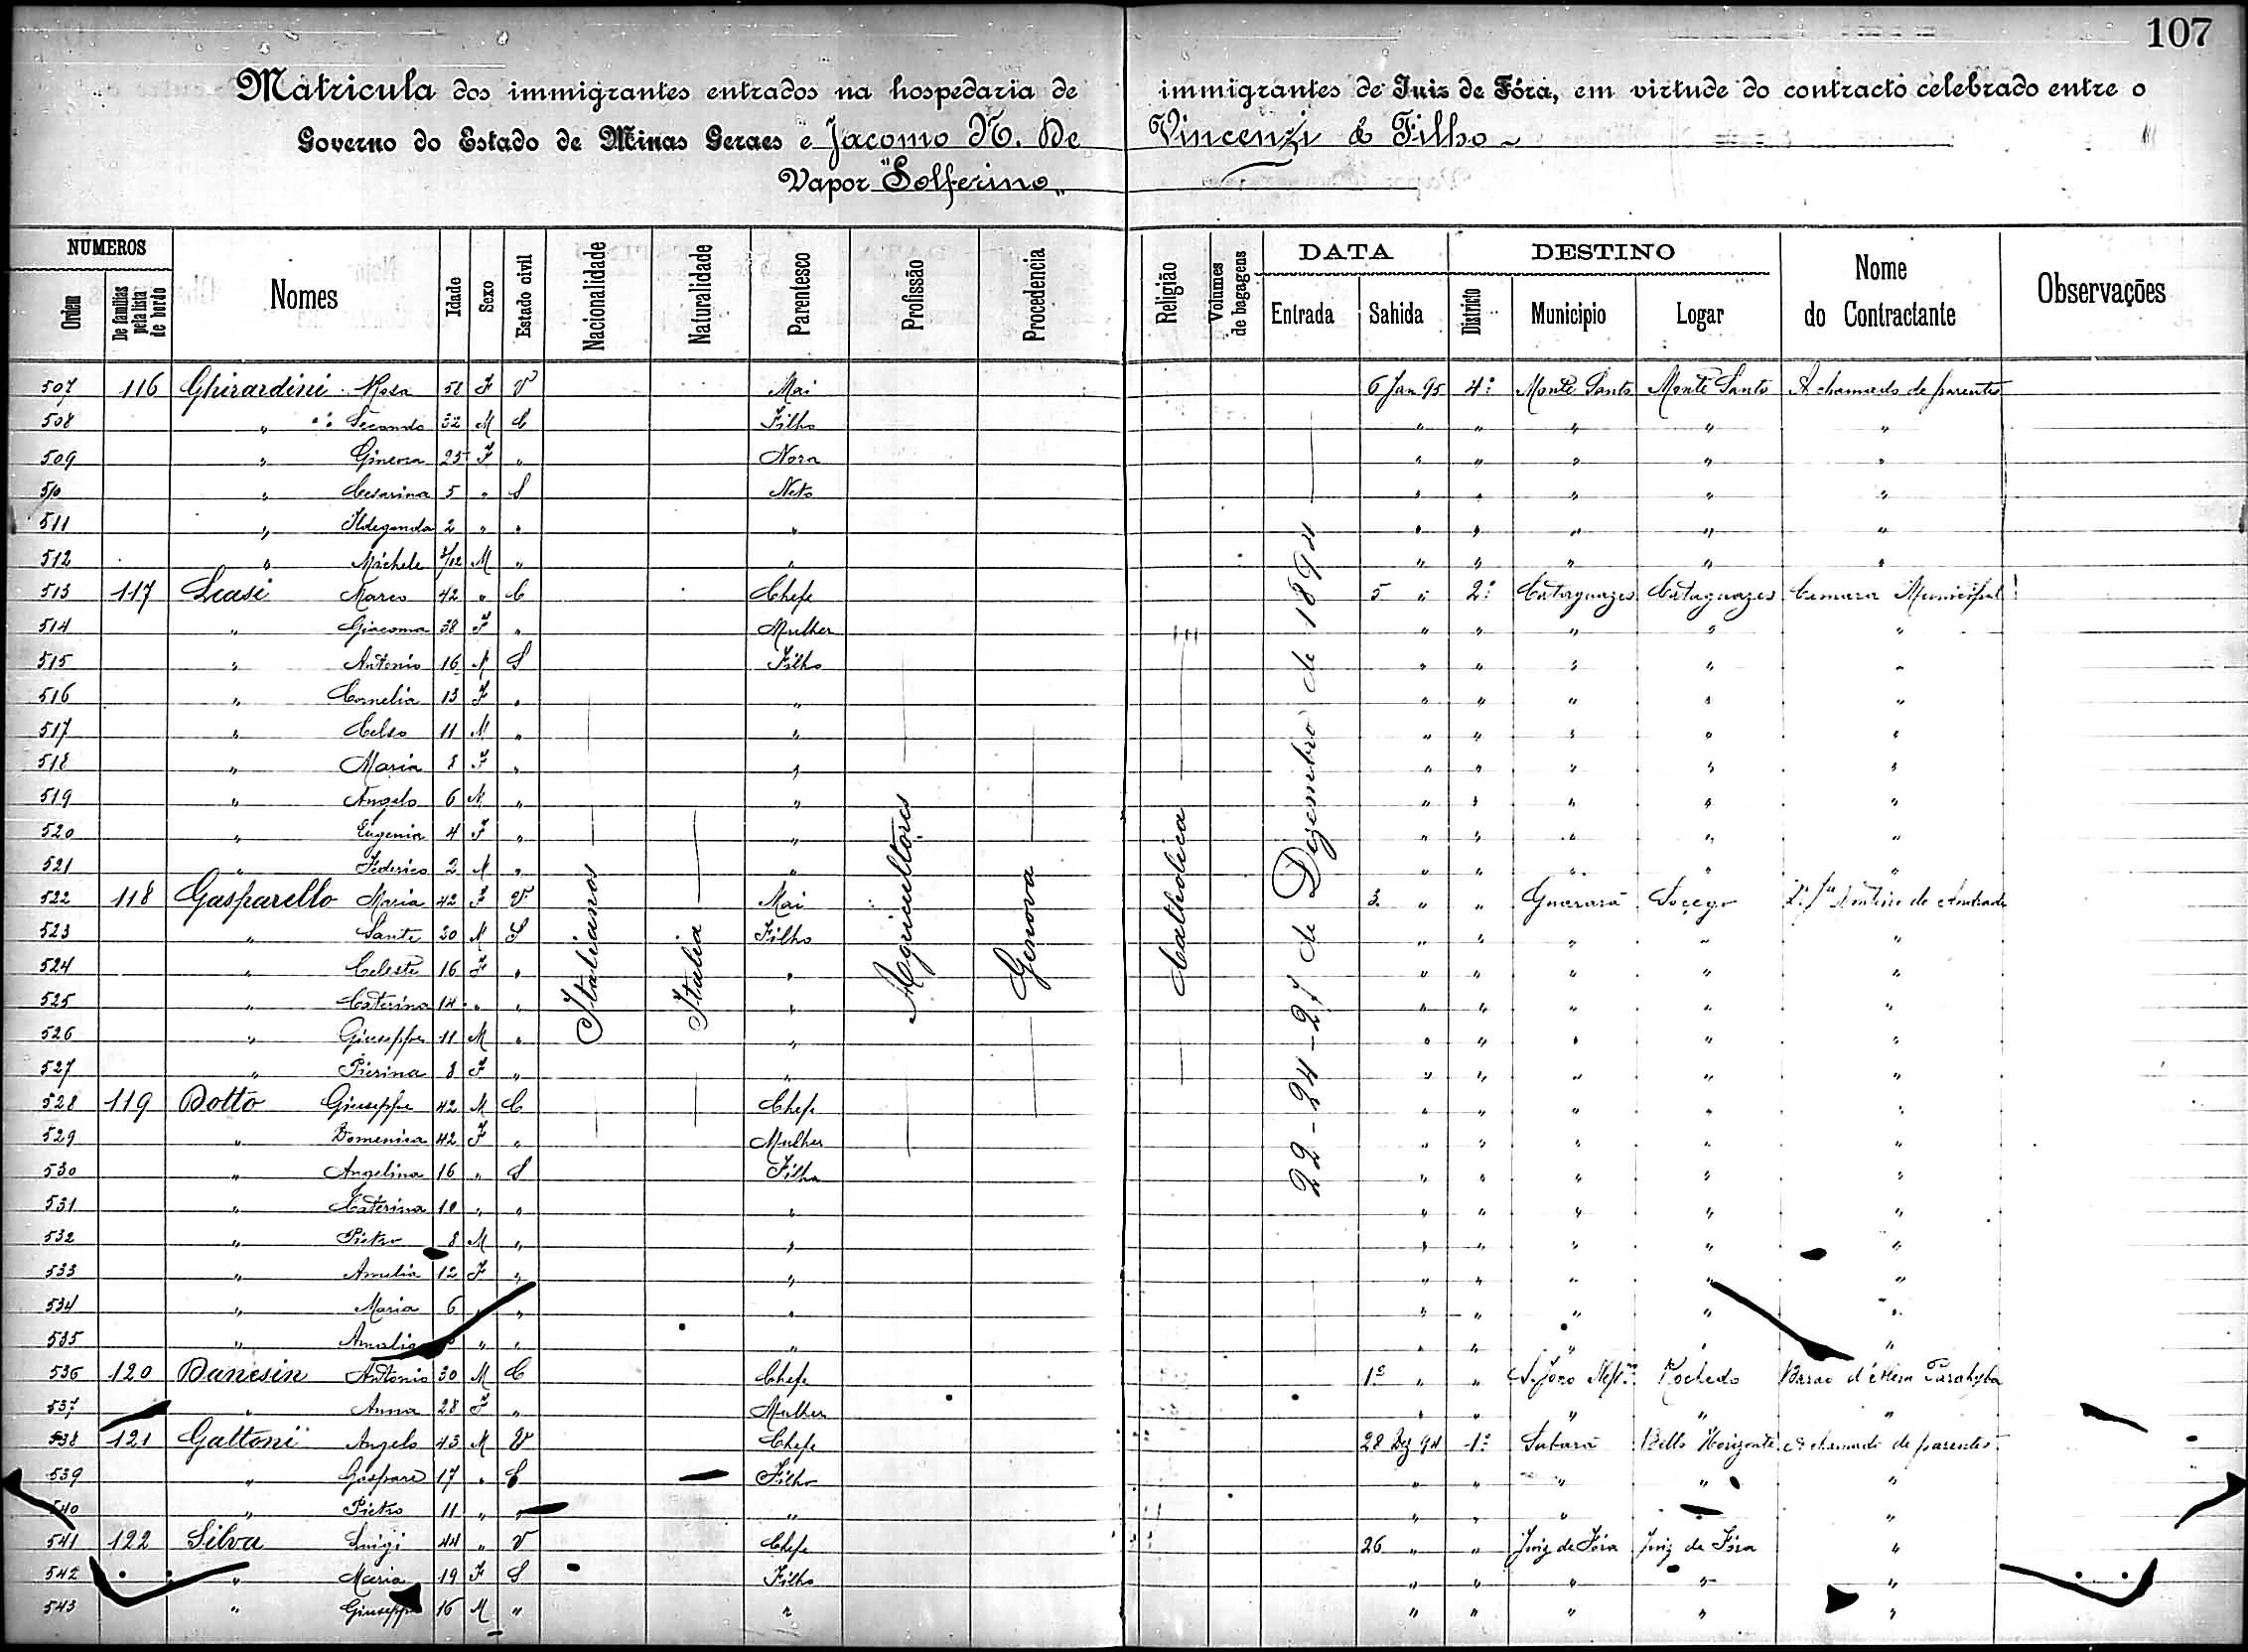 107
Matricula dos immigrantes entrados na hospedaria de immigrantes de Juiz de Fóra, em virtude do contracto celebrado entre o
Governo do Estado de Minas Geraes e Jacomo N. De Vincenzi & Filho
Vapor "Solferino"
NUMEROS DATA DESTINO
Ordem De familias pela lista de bordo Nomes Idade Sexo Estado civil Nacionalidade Naturalidade Parentesco Profissão Procedencia Religião Volumes de bagagens Entrada Sahida Districto Municipio Logar Nome do Contractante Observações
Italianos
Italia
Agricultores
Genova
Catholica
22-24-27 de Dezembro de 1894
507 116 Ghirardini Rosa 58 F V Mai 6 Jan 95 4º Monte Santo Monte Santo A chamado de parentes
508 " Secondo 32 M C Filho " " " " "
509 " Ginevra 25 F " Nora " " " " "
510 " Cesarina 5 " S Neto " " " " "
511 " Ildegonda 2 " " " " " " " "
512 " Michele /12 M " " " " " " "
513 117 Leasi Marco 42 " C Chefe 5 " 2º Cataguazes Cataguazes Camara Municipal
514 " Giacoma 38 F " Mulher " " " " "
515 " Antonio 16 M S Filho " " " " "
516 " Cornelia 13 F " " " " " " "
517 " Celso 11 M " " " " " " "
518 " Maria 8 F " " " " " " "
519 " Angelo 6 M " " " " " " "
520 " Eugenia 4 F " " " " " " "
521 " Federico 2 M " " " " " " "
522 118 Gasparello Maria 42 F V Mai 3 " " Guarará Socego de Andrade
523 " Sante 20 M S Filho " " " " "
524 " Celeste 16 F " " " " " " "
525 " Caterina 14 " " " " " " " "
526 " Giuseppe 11 M " " " " " " "
527 " Pierina 8 F " " " " " " "
528 119 Dotto Giuseppe 42 M C Chefe " " " " "
529 " Domenica 42 F " Mulher " " " " "
530 " Angelina 16 " S Filha " " " " "
531 " Caterina 10 " " " " " " " "
532 " Pietro 8 M " " " " " " "
533 " Amelia 12 F " " " " " " "
534 " Maria 6 " " " " " " " "
535 " Amalia " " " " " " " "
536 120 Danesin Antonio 30 M C Chefe 1º " " S. João Nepº Rochedo Barão d'Além Parahyba
537 " Anna 28 F " Mulher " " " " "
538 121 Gattoni Angelo 43 M V Chefe 28 Dez 94 1º Sabará Bello Horizonte A chamado de parentes
539 " Gaspare 17 " S Filho " " " " "
540 " Pietro 11 " " " " " " " "
541 122 Silva Luigi 44 " V Chefe 26 " " Juiz de Fóra Juiz de Fóra "
542 " Maria 19 F S Filho " " " " "
543 " Giuseppe 16 M " " " " " " "